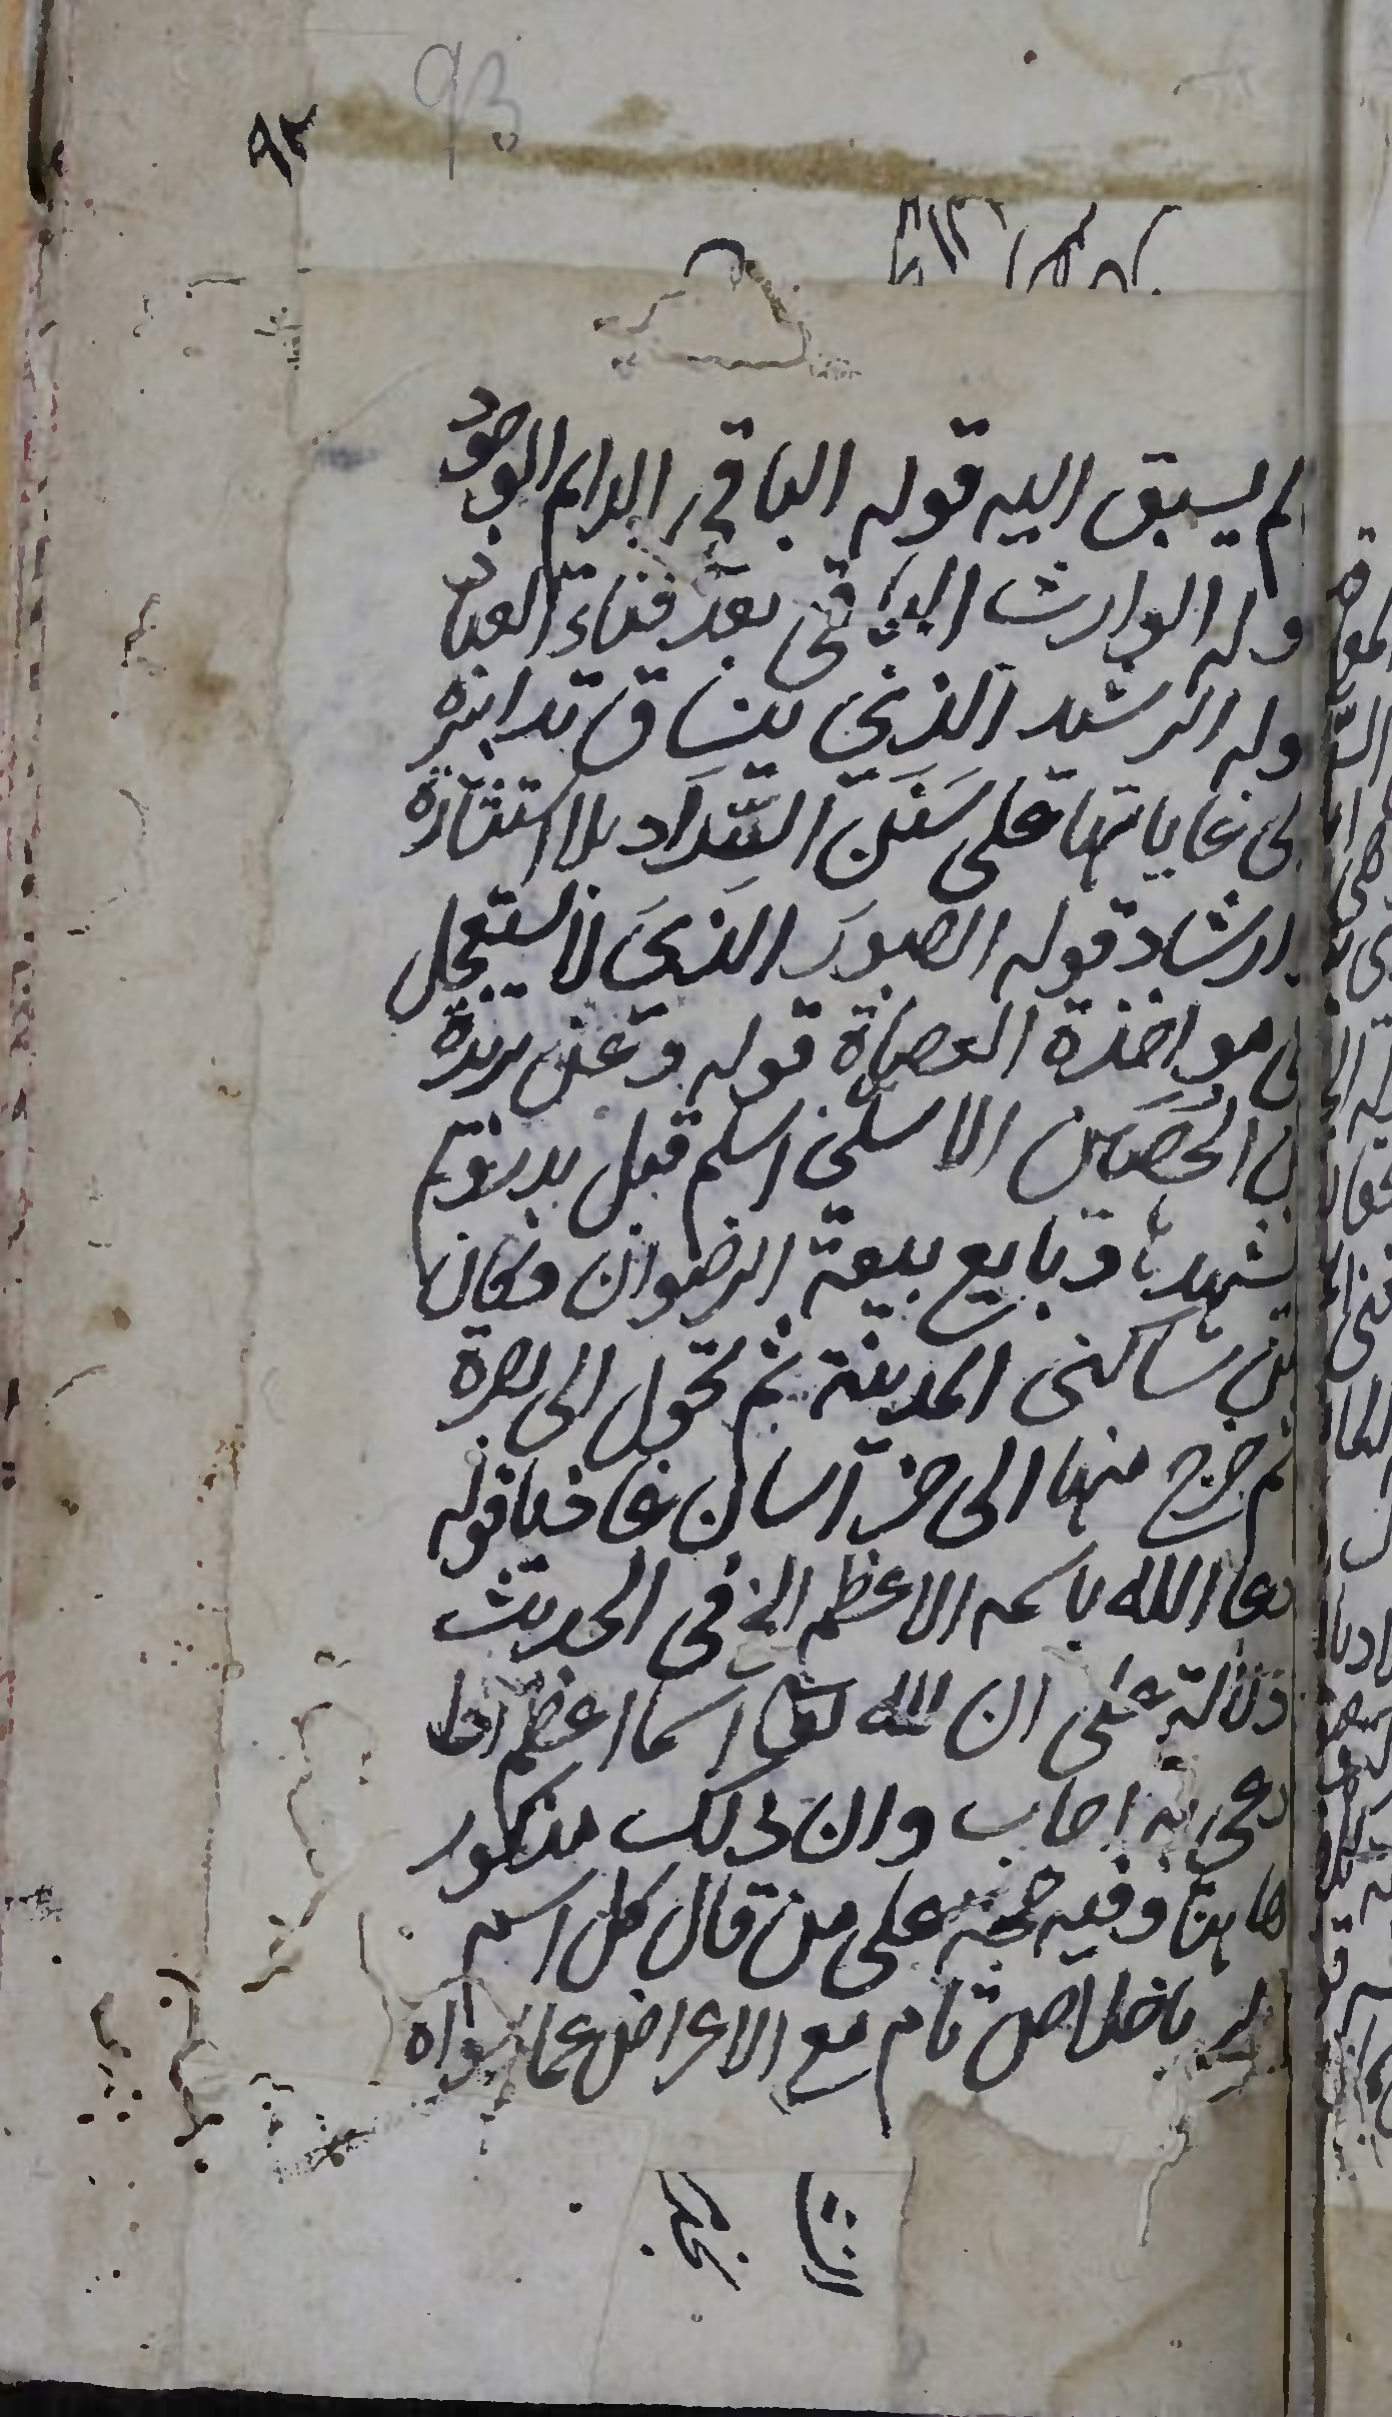 ٩٣
93
لم يسبق اليه قوله الباقي الدايم الوجود
وله الوارث الباقي بعد فناء العباد
وله الرشيد الذي ينساق تدابيره
لى غاياتها على سنن السَّدَاد بلا استشارة
وارشاد قوله الصبور الذي لا يستعجل
فى مواخذة العصاة قوله وعن بريدة
بن الحُصَين الاسلمي اسلم قبل بدر ولم
يشهدها وبايع بيعة الرضوان وكان
من ساكنى المدينة ثم تحول الى بصرة
ثم خرج منها الى خراسان غازيا قوله
دعا الله باسمه الاعظم الخ في الحديث
دلالة على ان لله تعالى اسما اعظم اذا
دعي به اجاب وان ذلك مذكور
هاهنا وفيه حجة على من قال كل اسم
باخلاص تام مع الاعراض عما سواه